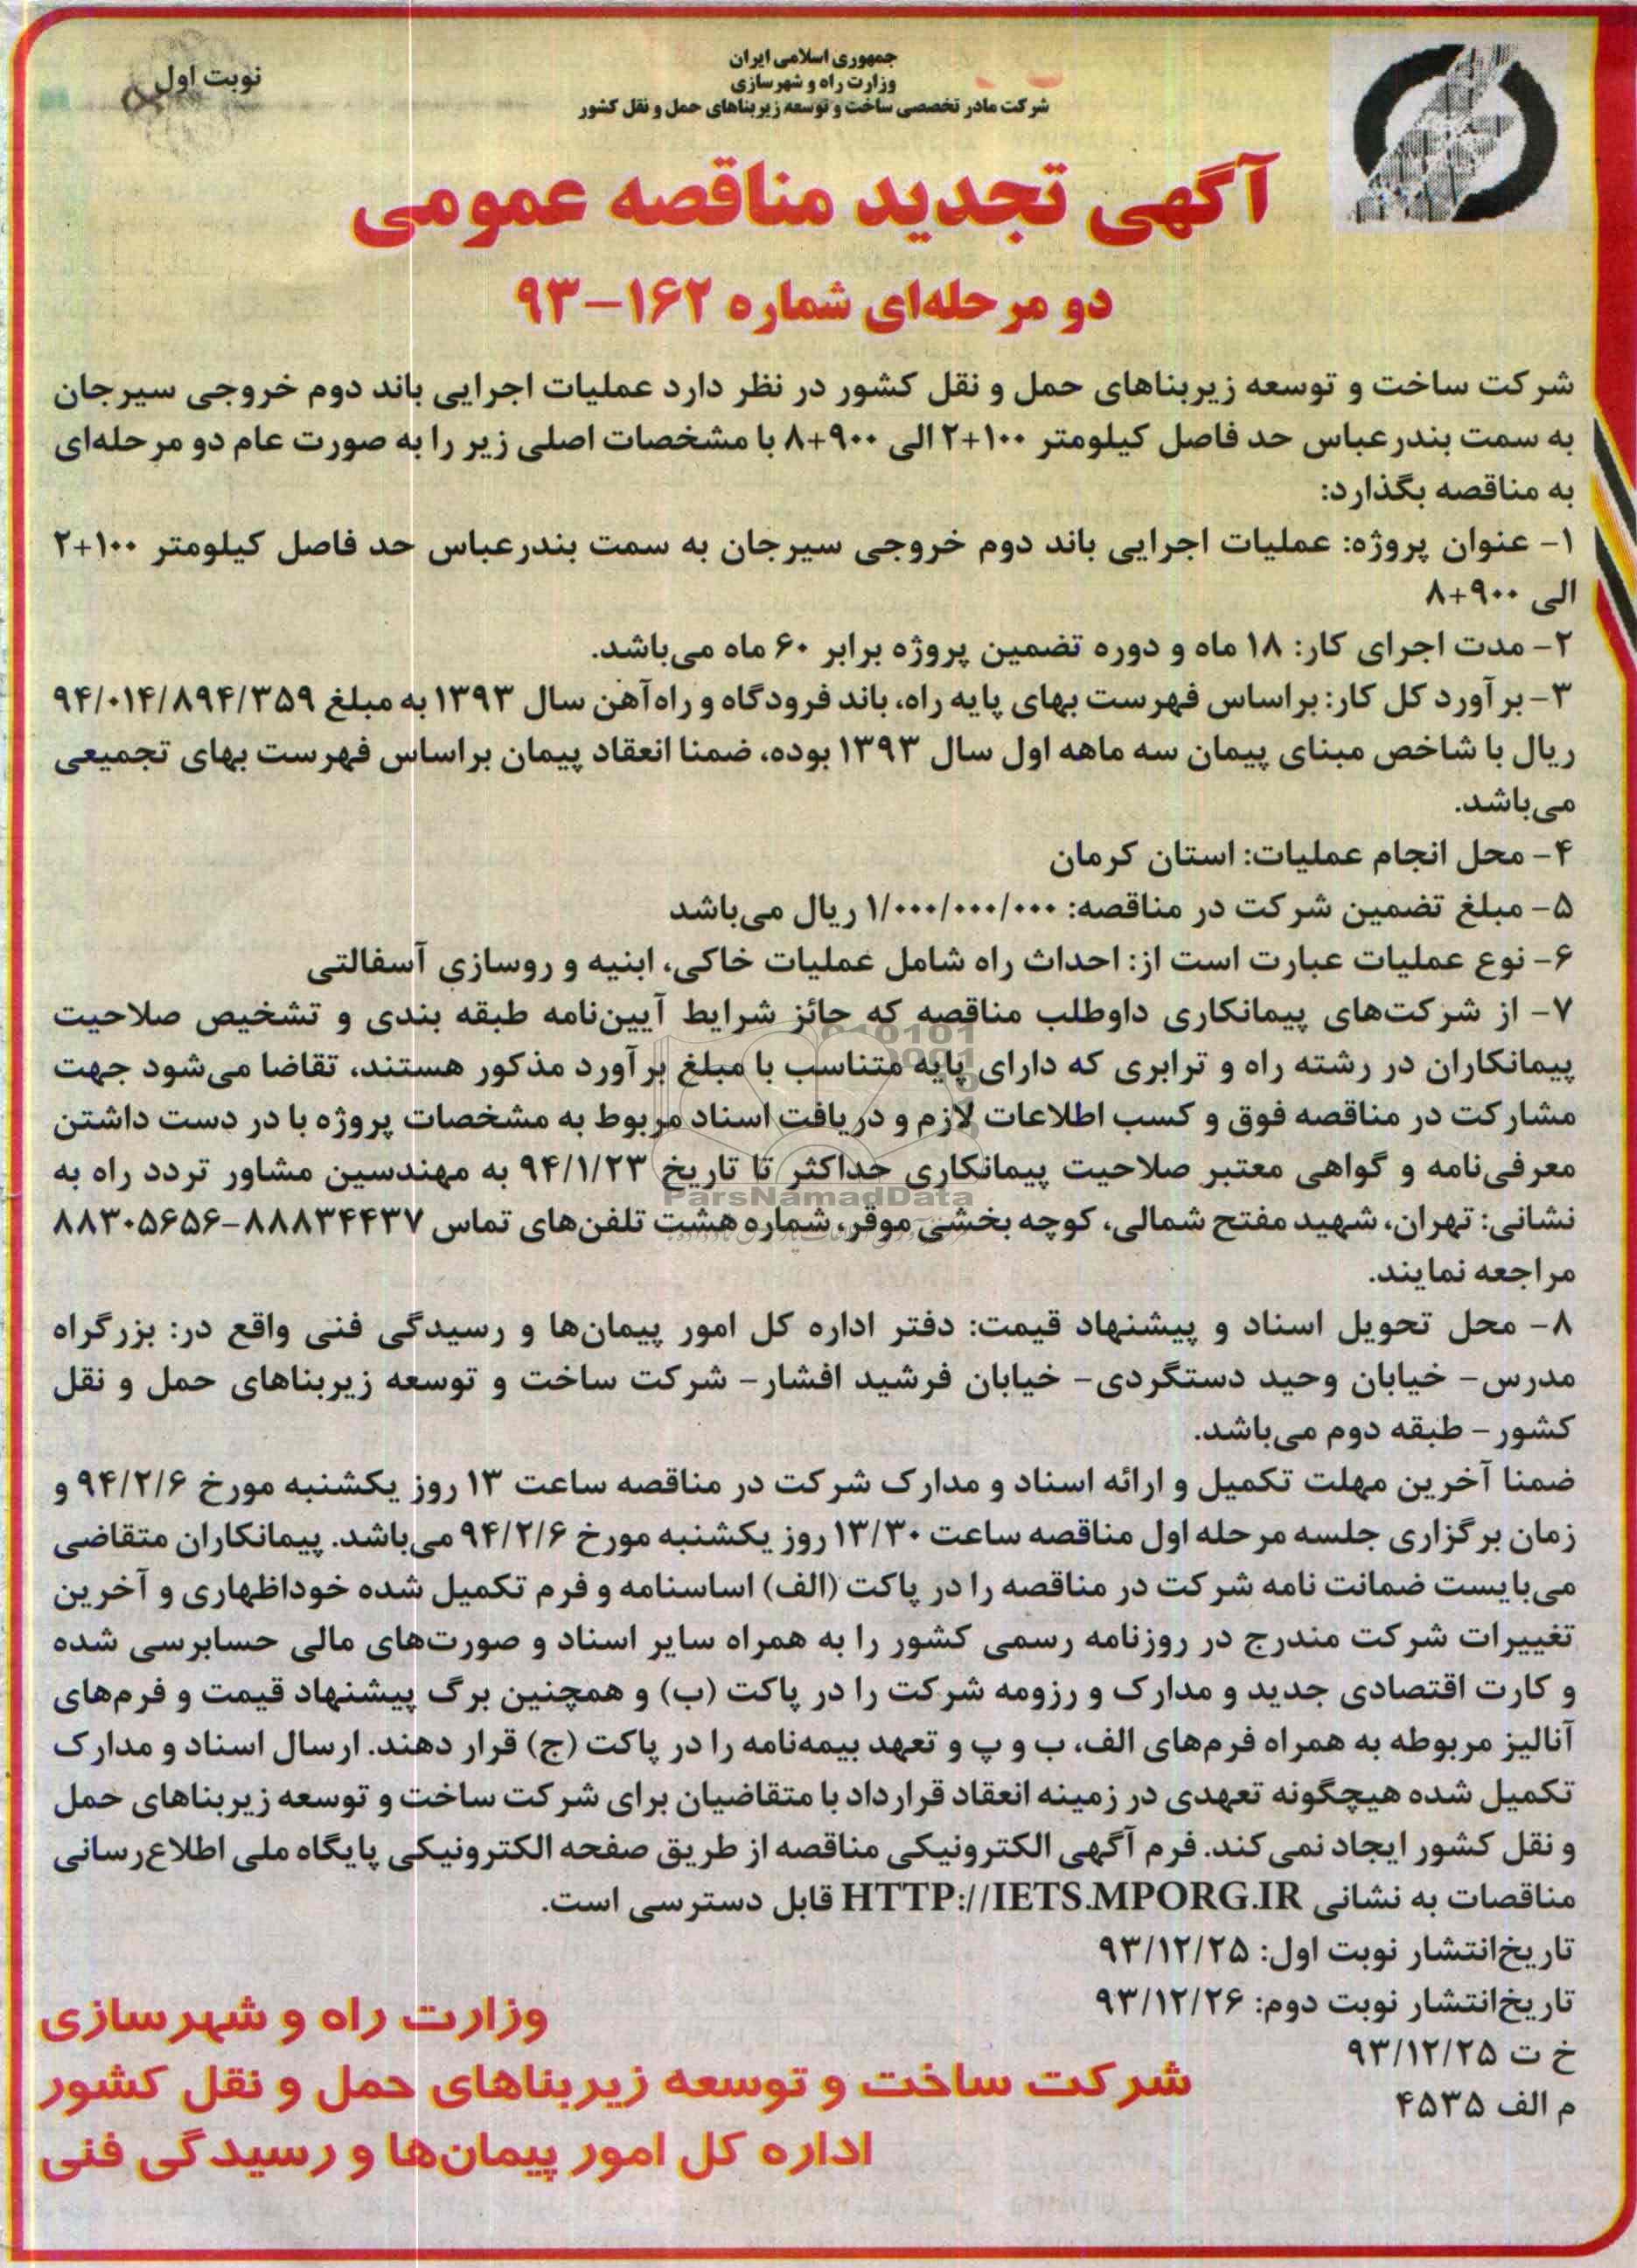 نوبت اول
جمهوری اسلامی ایران
وزارت راه و شهرسازی
شرکت مادر تخصصی ساخت و توسعه زیربناهای حمل و نقل کشور
آگهی تجدید مناقصه عمومی
دو مرحله‌ای شماره ۱۶۲-۹۳
شرکت ساخت و توسعه زیربناهای حمل و نقل کشور در نظر دارد عملیات اجرایی باند دوم خروجی سیرجان
به سمت بندرعباس حد فاصل کیلومتر ۱۰۰+۲ الی ۹۰۰+۸ با مشخصات اصلی زیر را به صورت عام دو مرحله‌ای
به مناقصه بگذارد:
۱- عنوان پروژه: عملیات اجرایی باند دوم خروجی سیرجان به سمت بندرعباس حد فاصل کیلومتر ۱۰۰+۲
الی ۹۰۰+۸
۲- مدت اجرای کار: ۱۸ ماه و دوره تضمین پروژه برابر ۶۰ ماه می‌باشد.
۳- برآورد کل کار: براساس فهرست بهای پایه راه، باند فرودگاه و راه‌آهن سال ۱۳۹۳ به مبلغ ۹۴/۰۱۴/۸۹۴/۳۵۹
ریال با شاخص مبنای پیمان سه ماهه اول سال ۱۳۹۳ بوده، ضمنا انعقاد پیمان براساس فهرست بهای تجمیعی
می‌باشد.
۴- محل انجام عملیات: استان کرمان
۵- مبلغ تضمین شرکت در مناقصه: ۱/۰۰۰/۰۰۰/۰۰۰ ریال می‌باشد
۶- نوع عملیات عبارت است از: احداث راه شامل عملیات خاکی، ابنیه و روسازی آسفالتی
۷- از شرکت‌های پیمانکاری داوطلب مناقصه که حائز شرایط آیین‌نامه طبقه بندی و تشخیص صلاحیت
پیمانکاران در رشته راه و ترابری که دارای پایه متناسب با مبلغ برآورد مذکور هستند، تقاضا می‌شود جهت
مشارکت در مناقصه فوق و کسب اطلاعات لازم و دریافت اسناد مربوط به مشخصات پروژه با در دست داشتن
معرفی‌نامه و گواهی معتبر صلاحیت پیمانکاری حداکثر تا تاریخ ۹۴/۱/۲۳ به مهندسین مشاور تردد راه به
نشانی: تهران، شهید مفتح شمالی، کوچه بخشی موقر، شماره هشت تلفن‌های تماس ۸۸۸۳۴۴۳۷-۸۸۳۰۵۶۵۶
مراجعه نمایند.
ParsNamadData
۸- محل تحویل اسناد و پیشنهاد قیمت: دفتر اداره کل امور پیمان‌ها و رسیدگی فنی واقع در: بزرگراه
مدرس- خیابان وحید دستگردی- خیابان فرشید افشار- شرکت ساخت و توسعه زیربناهای حمل و نقل
کشور- طبقه دوم می‌باشد.
ضمنا آخرین مهلت تکمیل و ارائه اسناد و مدارک شرکت در مناقصه ساعت ۱۳ روز یکشنبه مورخ ۹۴/۲/۶ و
زمان برگزاری جلسه مرحله اول مناقصه ساعت ۱۳/۳۰ روز یکشنبه مورخ ۹۴/۲/۶ می‌باشد. پیمانکاران متقاضی
می‌بایست ضمانت نامه شرکت در مناقصه را در پاکت (الف) اساسنامه و فرم تکمیل شده خوداظهاری و آخرین
تغییرات شرکت مندرج در روزنامه رسمی کشور را به همراه سایر اسناد و صورت‌های مالی حسابرسی شده
و کارت اقتصادی جدید و مدارک و رزومه شرکت را در پاکت (ب) و همچنین برگ پیشنهاد قیمت و فرم‌های
آنالیز مربوطه به همراه فرم‌های الف، ب و پ و تعهد بیمه‌نامه را در پاکت (ج) قرار دهند. ارسال اسناد و مدارک
تکمیل شده هیچگونه تعهدی در زمینه انعقاد قرارداد با متقاضیان برای شرکت ساخت و توسعه زیربناهای حمل
و نقل کشور ایجاد نمی‌کند. فرم آگهی الکترونیکی مناقصه از طریق صفحه الکترونیکی پایگاه ملی اطلاع‌رسانی
مناقصات به نشانی HTTP://IETS.MPORG.IR قابل دسترسی است.
تاریخ‌انتشار نوبت اول: ۹۳/۱۲/۲۵
تاریخ‌انتشار نوبت دوم: ۹۳/۱۲/۲۶
خ ت ۹۳/۱۲/۲۵
م الف ۴۵۳۵
وزارت راه و شهرسازی
شرکت ساخت و توسعه زیربناهای حمل و نقل کشور
اداره کل امور پیمان‌ها و رسیدگی فنی